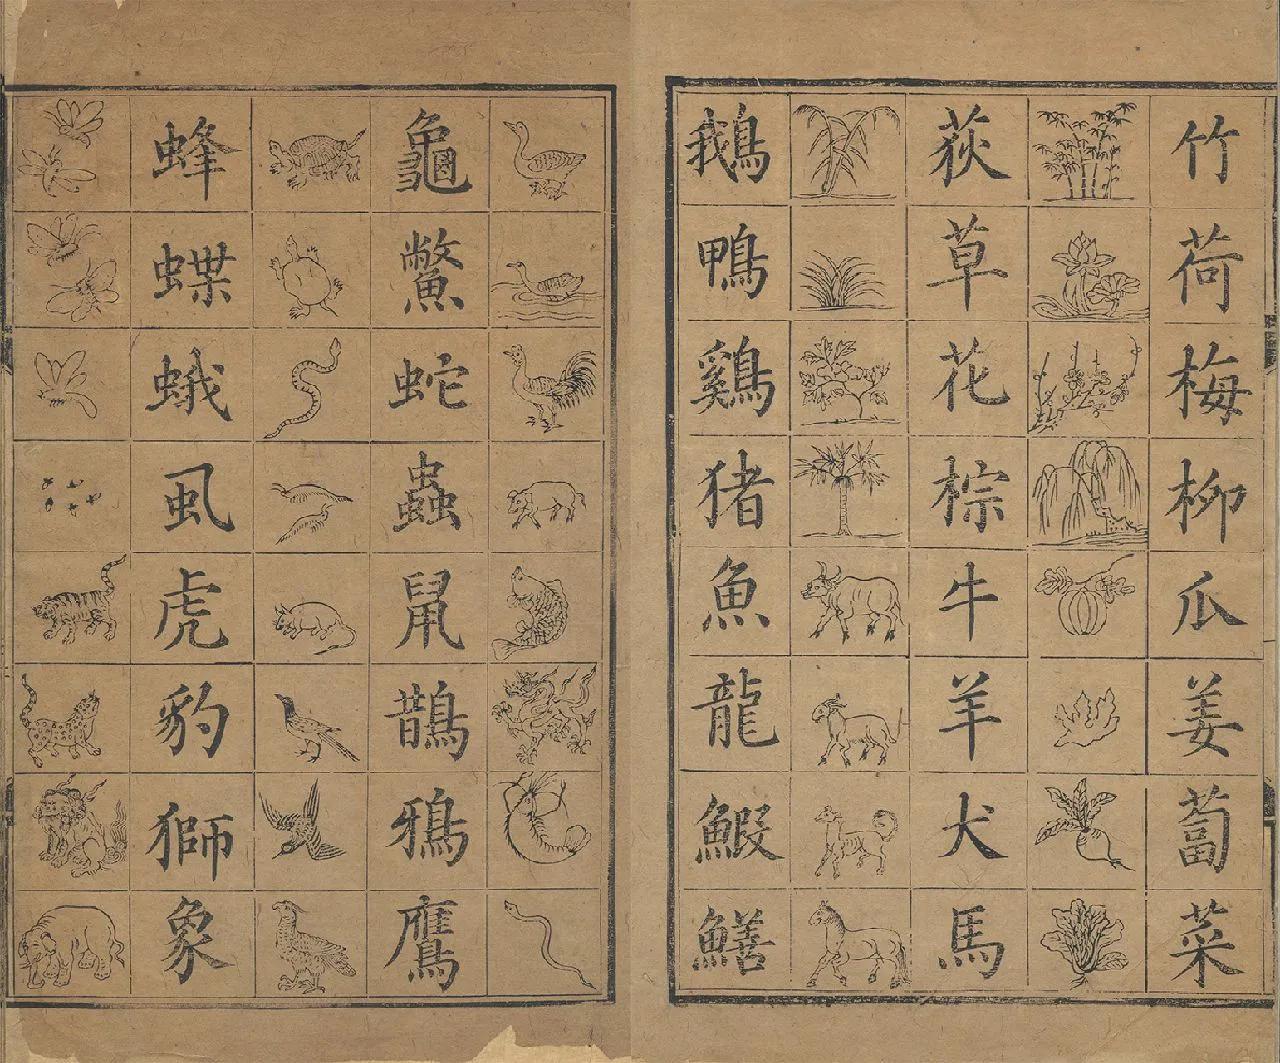 竹荷梅柳瓜姜蔔菜
荻草花棕牛羊犬馬
鵝鴨鷄猪魚龍鰕鱔
龜鱉蛇蟲鼠鵲鴉鷹
蜂蝶蛾虱虎豹獅象